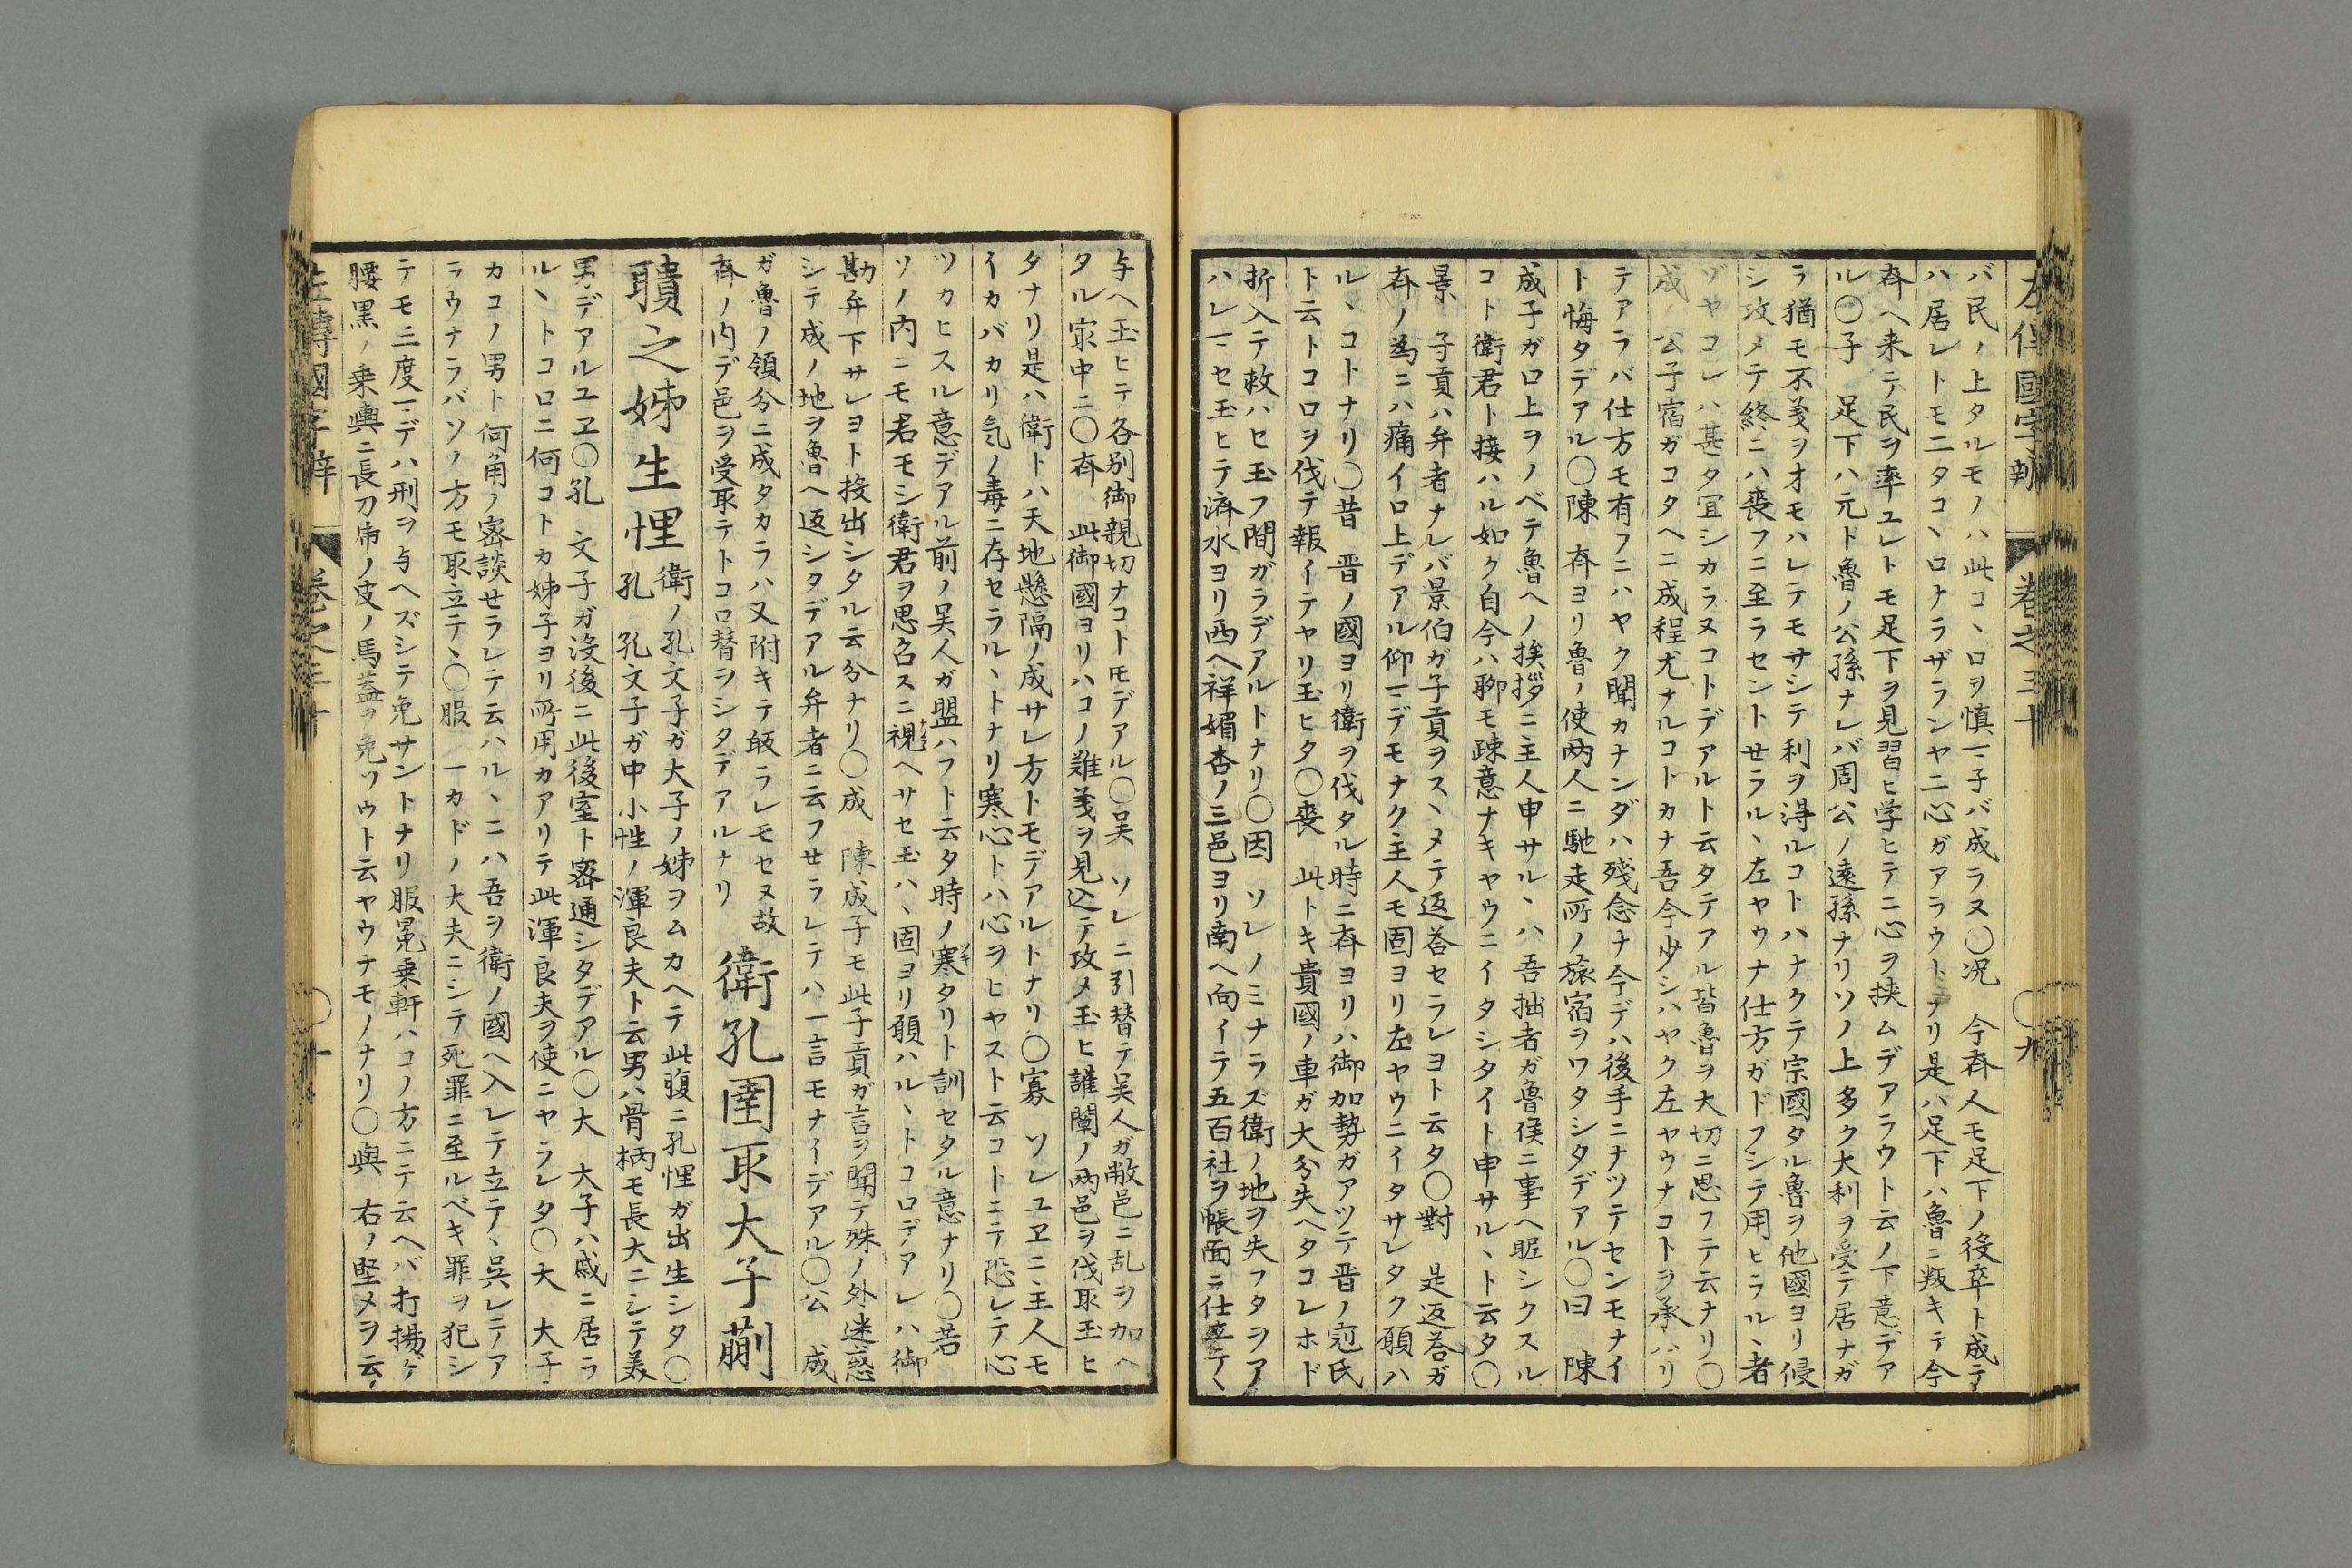 バ民ノ上タルモノハ此コヽロヲ慎マ子バ成ラヌ〇况 今斉人モ足下ノ役卒ト成テ
ハ居レトモ二タコヽロナラザランヤ二心ガアラウトナリ是ハ足下ハ魯ニ叛キテ今
斉ヘ来テ民ヲ率ユレトモ足下ヲ見習ヒ学ヒテ二心ヲ挟ムデアラウト云ノ下意デア
ル〇子 足下ハ元ト魯ノ公孫ナレバ周公ノ遠孫ナリソノ上多ク大利ヲ受テ居ナガ
ラ猶モ不義ヲオモハレテモサシテ利ヲ得ルコトハナクテ宗國タル魯ヲ他國ヨリ侵
シ攻メテ終ニハ喪フニ至ラセントせラルヽ左ヤウナ仕方ガドフシテ用ヒラルヽ者
ゾヤコレハ甚タ宜シカラヌコトデアルト云タテアル皆魯ヲ大切ニ思フテ云ナリ〇
成 公子宿ガコタヘニ成程尤ナルコトカナ吾今少シハヤク左ヤウナコトヲ承ハリ
テアラバ仕方モ有フニハヤク聞カナンダハ残念ナ今デハ後手ニナツテセンモナイ
ト悔タデアル〇陳 斉ヨリ魯ノ使両人ニ馳走所ノ旅宿ヲワタシタデアル〇曰 陳
成子ガ口上ヲノベテ魯ヘノ挨拶ニ主人申サルヽハ吾拙者ガ魯侯ニ事ヘ昵シクスル
コト衛君ト接ハル如ク自今ハ聊モ疎意ナキヤウニイタシタイト申サルヽト云タ〇
景 子貢ハ弁者ナレバ景伯ガ子貢ヲスヽメテ返答セラレヨト云タ〇對 是返答ガ
斉ノ為ニハ痛イロ上デアル仰マデモナク主人モ固ヨリ左ヤウニイタサレタク願ハ
ルヽコトナリ〇昔 晋ノ國ヨリ衛ヲ伐タル時ニ斉ヨリハ御加勢ガアツテ晋ノ冠氏
ト云トコロヲ伐テ報イテヤリ玉ヒタ〇喪 此トキ貴國ノ車ガ大分失ヘタコレホド
折入テ救ハセ玉フ間ガラデアルトナリ〇因 ソレノミナラズ衛ノ地ヲ失フタヲア
ハレマセ玉ヒテ済水ヨリ西ヘ祥媚杏ノ三邑ヨリ南ヘ向イテ五百社ヲ帳面ニ仕立テヽ
卷之三十
〇九
与ヘ玉ヒテ各別御親切ナコトモデアル〇吴 ソレニ引替テ吴人ガ敝邑ニ乱ヲ加ヘ
タル㝡中ニ〇斉 此御國ヨリハコノ難義ヲ見込テ攻メ玉ヒ讙闡ノ両邑ヲ伐取玉ヒ
タナリ是ハ衛トハ天地懸隔ノ成サレ方トモデアルトナリ〇寡 ソレユヱニ主人モ
イカバカリ気ノ毒ニ存セラルヽトナリ寒心トハ心ヲヒヤスト云コトニテ恐レテ心
ツカヒスル意デアル前ノ吴人ガ盟ハフト云タ時ノ寒タリト訓セタル意ナリ〇若
ソノ内ニモ君モシ衛君ヲ思召スニ視ヘサセ玉ハヽ固ヨリ願ハルヽトコロデアレハ御
勘弁下サレヨト投出シタル云分ナリ〇成 陳成子モ此子貢ガ言ヲ聞テ殊ノ外迷惑
シテ成ノ地ヲ魯ヘ返シタデアル弁者ニ云フせラレテハ一言モナイデアル〇公 成
ガ魯ノ領分ニ成タカラハ又附キテ皈ラレモセヌ故
斉ノ内デ邑ヲ受取テトコロ替ヲシタデアルナリ
衛孔圉取大子蒯
聵之姊生悝
衛ノ孔文子ガ大子ノ姊ヲムカヘテ此腹ニ孔悝ガ出生シタ〇
孔 孔文子ガ中小性ノ渾良夫ト云男ハ骨柄モ長大ニシテ美
男デアルユヱ〇孔 文子ガ没後ニ此後室ト密通シタデアル〇大 大子ハ戚ニ居ラ
ルヽトコロニ何コトカ姊子ヨリ所用カアリテ此渾良夫ヲ使ニヤラレタ〇大 大子
カコノ男ト何角ノ密談せラレテ云ハルヽニハ吾ヲ衛ノ國ヘ入レテ立テヽ呉レニア
ラウナラバソノ方モ取立テヽ〇服 一カドノ大夫ニシテ死罪ニ至ルベキ罪ヲ犯シ
テモ三度マデハ刑ヲ与ヘズシテ免サントナリ服冕乗軒ハコノ方ニテ云ヘバ打揚ゲ
腰黒ノ乗輿ニ長刀虎ノ皮ノ馬蓋ヲ免ソウト云ヤウナモノナリ〇與 右ノ堅メヲ云